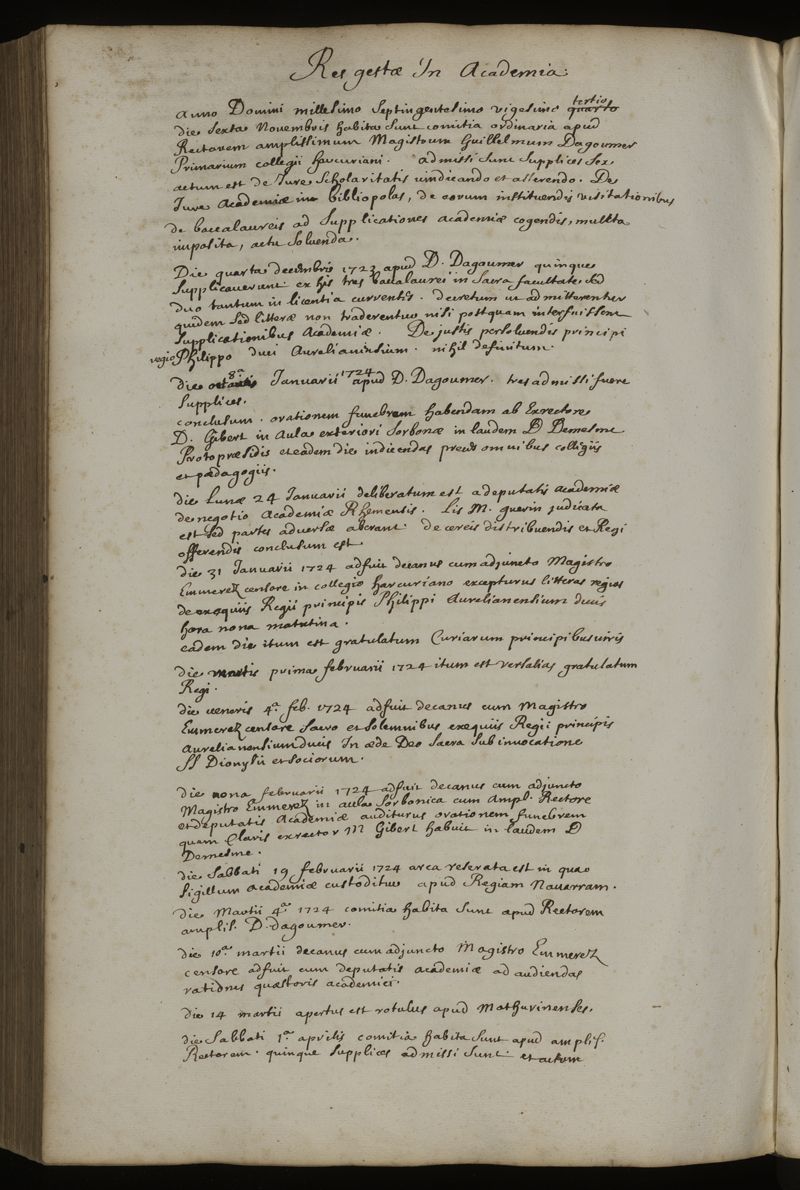 Res gestæ In Academia.
anno Domini millesimo septingentesimo vigesimo quarto tertio
die sexta Novembris habita sunt comitia ordinaria apud
Rectorem amplissimum Magistrum Guillelmum Dagoumer
Primarium collegii harcuriani. admissi sunt supplices sex,
actum est de Jure scholaritatis vindicando et asserendo. De
Jure Academiæ in bibliopolas, de eorum instituendis visitationibus
de baccalaureis ad supplicationes academiæ cogendis, mulcta
imposita, actu solvenda.
Die quarta decembris 1723 apud D. Dagoumer quinque
supplicaverunt ex his tres baccalaurei in sacra facultate, sed
duo tantum in licentia currentes. decretum ut admitterentur
quidem sed litteræ non traderentur nisi postquam interfuissent
supplicationibus Academiæ. De justis persolvendis principi
regio Philippo duci Aurelianensium. nihil definitum.
die 8ª Januarii 1724 apud D. Dagoumer. tres admissi fuere
supplices.
conclusum. orationem funebrem habendam ab Exrectore
D. Gibert in Aula exteriori Sorbonæ in laudem D Demesme
Protopræsidis et eadem die indicendas preces omnibus collegiis
et pædagogiis.
die Lunæ 24 Januarii deliberatum est a deputatis academiæ
de negotio Academiæ Rhemensis. Lis M. guerin judicata
est sed partes adversæ aberant. de cereis distribuendis et Regi
offerendis conclusum est.
die 31 Januarii 1724 adfuit decanus cum adjuncto Magistro
Emmerez censore in collegio harcuriano excepturus litteras regias
de exequiis Regii principis Philippi Aurelianensium ducis
hora nona matutina.
eadem die itum est gratulatum Curiarum principibus viris
die martis prima februarii 1724 itum est versalias gratulatum
Regi.
die veneris 4ª feb. 1724 adfuit decanus cum Magistro
Emmerez censore sacro et solemnibus exequiis Regii principis
Aurelianensium ducis In æde Deo sacra sub invocatione
SS Dionysii et sociorum.
die nona februarii 1724 adfuit decanus cum adjuncto
Magistro Emmerez in aula Sorbonica cum Ampl. Rectore
et deputatis Academiæ auditurus orationem funebrem
quam Claris exrector M Gibert habuit in laudem D
Demesme.
die Sabbati 19 februarii 1724 arca reserata est in qua
sigillum academiæ custoditur apud Regiam Navarram.
die Martii 4ª 1724 comitia habita sunt apud Rectorem
amplis. D. dagoumer.
die 10ª martii decanus cum adjuncto Magistro Emmerez
censore adfuit cum deputatis academiæ ad audiendas
rationes quæstoris academici.
die 14 martii apertus est rotulus apud Mathurinenses.
die Sabbati 1ª aprilis comitia habita sunt apud amplis.
Rectorem. quinque supplices admissi sunt. et actum